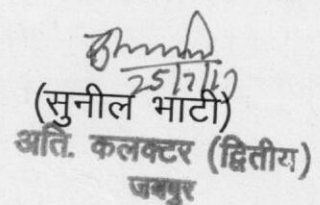 25/7/12
(सुनील भाटी)
अति. कलक्टर (द्वितीय)
जयपुर